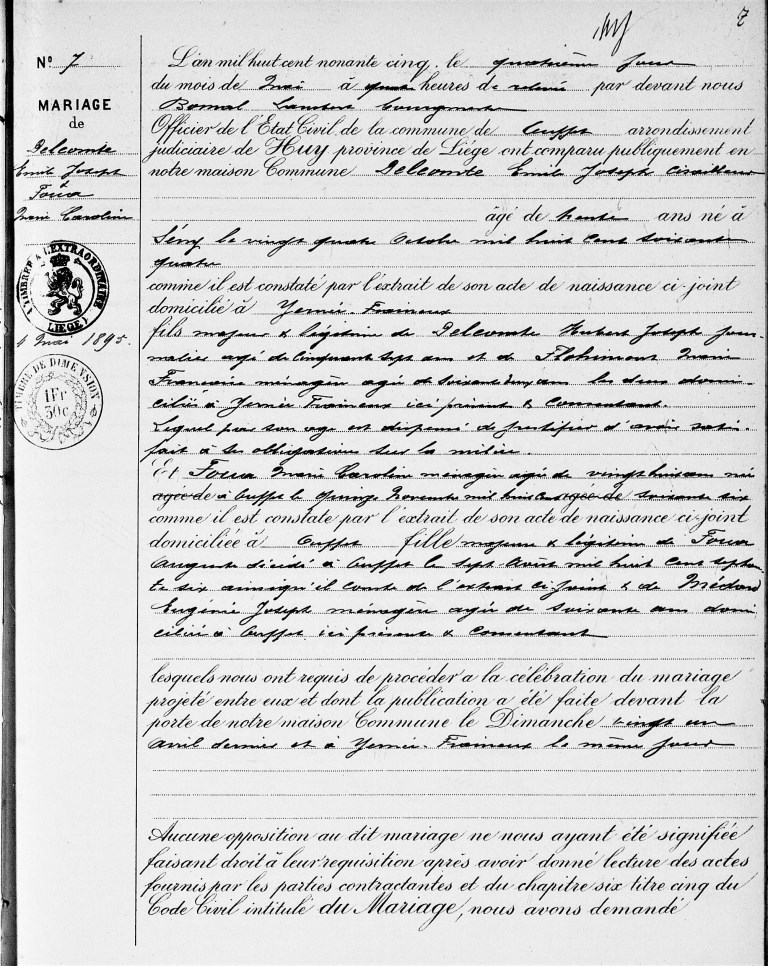 7
N° 7
MARIAGE
de
Delcomte
Emile Joseph
&
Foua
Marie Caroline
TIMBRE A L'EXTRAORDINAIRE
LIEGE
4 Mai 1895.
TIMBRE DE DIMENSION
1Fr
30c
L'an mil huit cent nonante cinq, le quatrième jour
du mois de Mai à heures de relevée par devant nous
Bomal Lambert bourgmestre
Officier de l'Etat Civil de la commune de Ouffet arrondissement
judiciaire de Huy province de Liége ont comparu publiquement en
notre maison Commune Delcomte Emile Joseph
âgé de trente ans né à
le vingt quatre Octobre mil huit cent soixante
quatre
comme il est constaté par l'extrait de son acte de naissance ci-joint
domicilié à Yernée-Fraineux
fils majeur & légitime de Delcomte Hubert Joseph jour-
nalier agé de cinquante sept ans et de Marie
Françoise ménagère agée de ans les deux domi-
ciliés à Yernée Fraineux ici présent & consentant.
Lequel par son age est dispensé de justifier d'avoir satis-
fait à ses obligations sur la milice.
Et Foua Marie Caroline ménagère agée de vingt huit ans née
agée de à Ouffet le quinze Novembre mil huit cent agée de soixante six
comme il est constaté par l'extrait de son acte de naissance ci-joint
domiciliée à Ouffet fille majeure & légitime de Foua
Auguste décédé à Ouffet le sept Août mil huit cent septan-
te six ainsi qu'il conste de l'extrait ci-joint & de Médard
Eugénie Joseph ménagère agée de soixante ans domi-
ciliée à Ouffet ici présente & consentant
lesquels nous ont requis de procéder a la célébration du mariage
projeté entre eux et dont la publication a été faite devant la
porte de notre maison Commune le Dimanche vingt un
Avril dernier et à Yernée-Fraineux le même jour
Aucune opposition au dit mariage ne nous ayant été signifiée
faisant droit à leur requisition après avoir donné lecture des actes
fournis par les parties contractantes et du chapitre six titre cinq du
Code Civil intitulé du Mariage, nous avons demandé